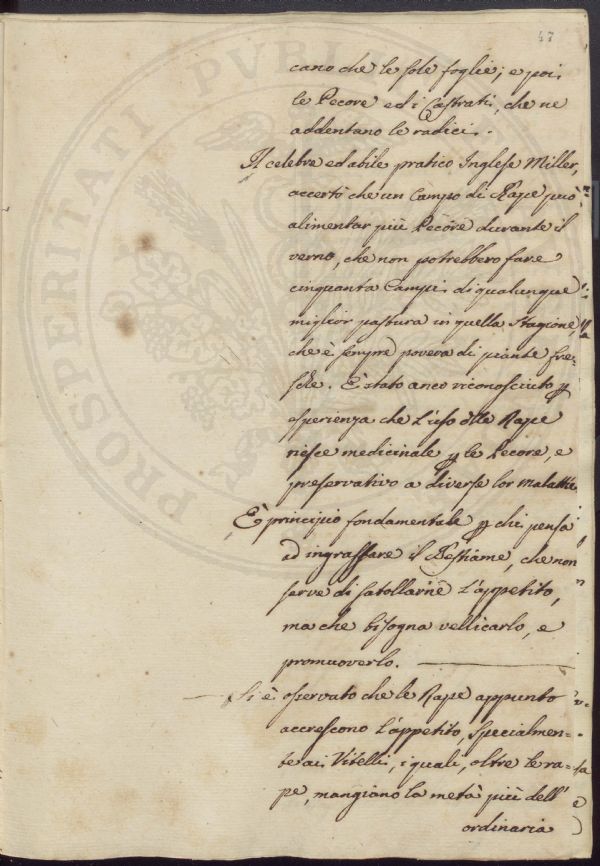 47
cano che le sole foglie; e poi
le Pecore ed i Castrati, che ne
addentano le radici.
Il celebre ed abile pratico Inglese Miller,
accertò che un Campo di Rape può
alimentar più Pecore durante il
verno, che non potrebbero fare
cinquanta Campi di qualunque
miglior pastura in quella Stagione,
che è sempre povera di piante fre-
sche. È stato anco riconosciuto ꝑ
esperienza che l'uso delle Rape
riesce medicinale ꝑ le Pecore, e
preservativo a diverse lor malattie.
È principio fondamentale ꝑ chi pensa
ad ingrassare il Bestiame, che non
serve di satollarne l'appetito,
ma che bisogna vellicarlo, e
promuoverlo.
Si è osservato che le Rape appunto
accrescono l'appetito, specialmen=
te ai Vitelli, i quali, oltre le ra=
pe, mangiano la metà più dell'
ordinaria
PROSPERITATI PUBLI